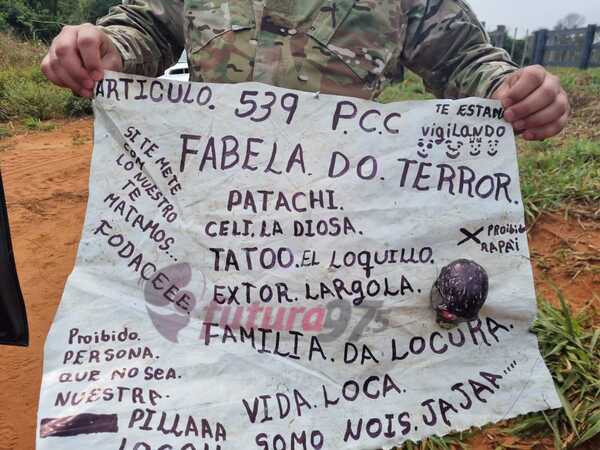 ARTICULO. 539 P.C.C
TE ESTAN
vigilando
FABELA. DO. TERROR.
SI TE METE
CON
LO NUESTRO
TE
MATAMOS...
FODACEEE
PATACHI.
CELI. LA DIOSA.
X PROIBIDO
RAPAI
TATOO. EL LOQUILLO.
EXTOR. LARGOLA.
futura97.5
FAMILIA. DA LOCURA.
Proibido.
PERSONA.
QUE NO SEA.
NUESTRA.
PILLAAA
VIDA. LOCA.
SOMO NOIS. JAJAA....